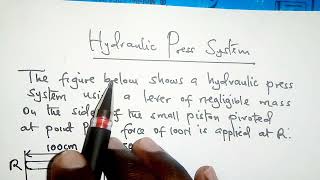 Hydraulic Press System
The figure below shows a hydraulic press
system using a lever of negligible mass
on the side of the small piston pivoted
at point P. A force of 100N is applied at R.
100cm
R